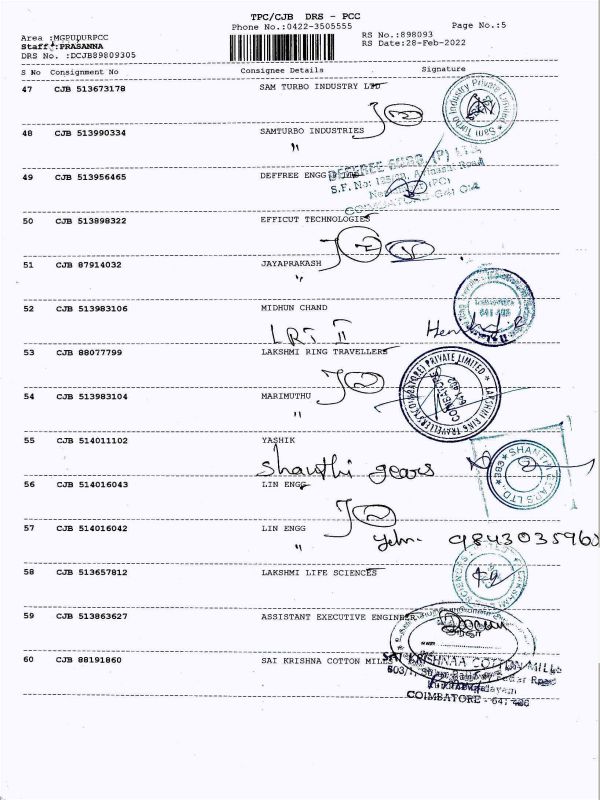 TPC/CJB DRS - PCC
Phone No.:0422-3505555
Page No.:5
Area :MGPUDURPCC
RS No.:898093
Staff :PRASANNA
RS Date:28-Feb-2022
DRS No. :DCJB89809305
S No Consignment No Consignee Details Signature
47 CJB 513673178 SAM TURBO INDUSTRY LTD
Sam Turbo Industry Private Limited
48 CJB 513990334 SAMTURBO INDUSTRIES
"
49 CJB 513956465 DEFFREE ENGG
DEFFREE ENGG. (P) LTD.
Avinashi Road
COIMBATORE 641 014
50 CJB 513898322 EFFICUT TECHNOLOGIES
51 CJB 87914032 JAYAPRAKASH
"
52 CJB 513983106 MIDHUN CHAND
LRT II
53 CJB 88077799 LAKSHMI RING TRAVELLERS
LAKSHMI RING TRAVELLERS (COIMBATORE) PRIVATE LIMITED
COIMBATORE
54 CJB 513983104 MARIMUTHU
"
55 CJB 514011102 YASHIK
Shanthi gears
SHANTHI GEARS LTD.
56 CJB 514016043 LIN ENGG
57 CJB 514016042 LIN ENGG
" 9843035960
58 CJB 513657812 LAKSHMI LIFE SCIENCES
59 CJB 513863627 ASSISTANT EXECUTIVE ENGINEER
60 CJB 88191860 SAI KRISHNA COTTON MILLS
SAI KRISHNAA COTTON MILLS
COIMBATORE - 641